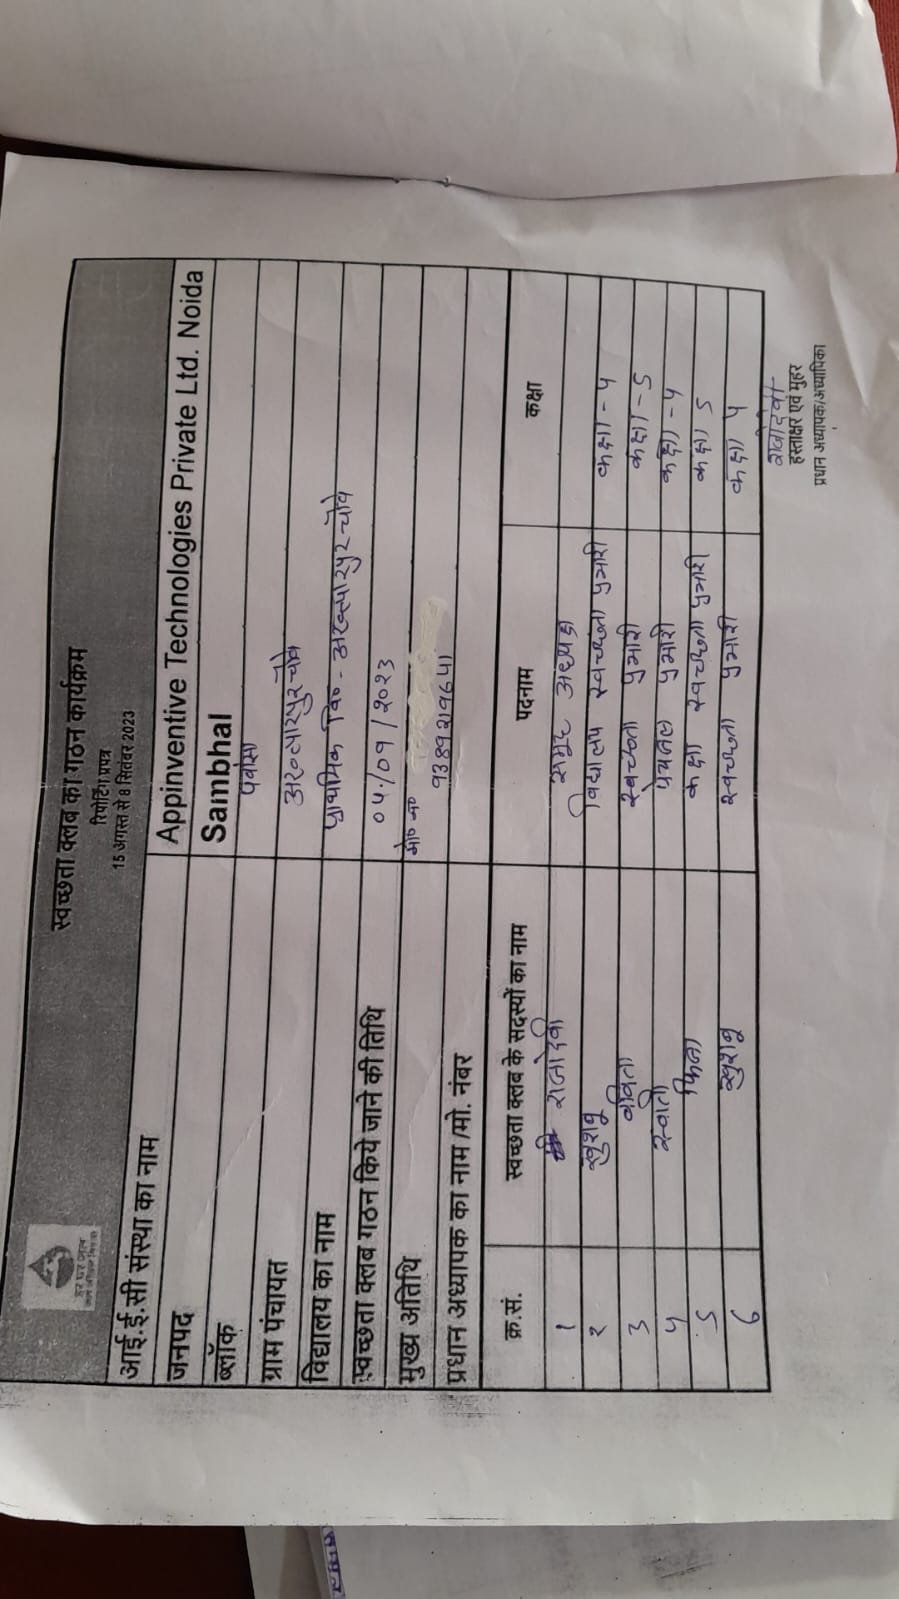 हर घर जल
स्वच्छता क्लब का गठन कार्यक्रम
रिपोर्टिंग प्रपत्र
15 अगस्त से 8 सितंबर 2023
आई.ई.सी संस्था का नाम Appinventive Technologies Private Ltd. Noida
जनपद Sambhal
ब्लॉक पवांसा
ग्राम पंचायत
विद्यालय का नाम प्राथमिक वि०-
स्वच्छता क्लब गठन किये जाने की तिथि ०५/०९/२०२३
मुख्य अतिथि
मो० न०
प्रधान अध्यापक का नाम /मो. नंबर
क्र.सं. स्वच्छता क्लब के सदस्यों का नाम पदनाम कक्षा
१ राजो देवी समूह अध्यक्ष
२ खुशबू विद्यालय स्वच्छता प्रभारी कक्षा - ५
३ स्वच्छता प्रभारी कक्षा - 5
५ स्वाती पेयजल प्रभारी कक्षा - ५
5 कक्षा स्वच्छता प्रभारी कक्षा 5
६ खुशबू स्वच्छता प्रभारी कक्षा ५
राजो देवी
हस्ताक्षर एवं मुहर
प्रधान अध्यापक/अध्यापिका